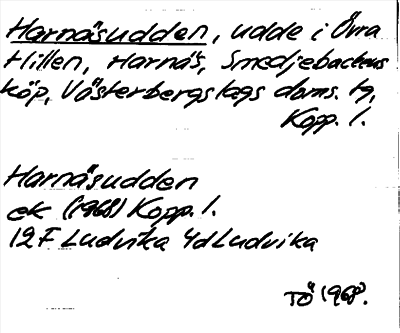 Harnäsudden, udde i Övra
Hillen, Harnäs, Smedjebackens
köp, Västerbergslags doms. tg,
Kopp. l.
Harnäsudden
ek (1968) Kopp. l.
12F Ludvika 4d Ludvika
TÖ 1968.